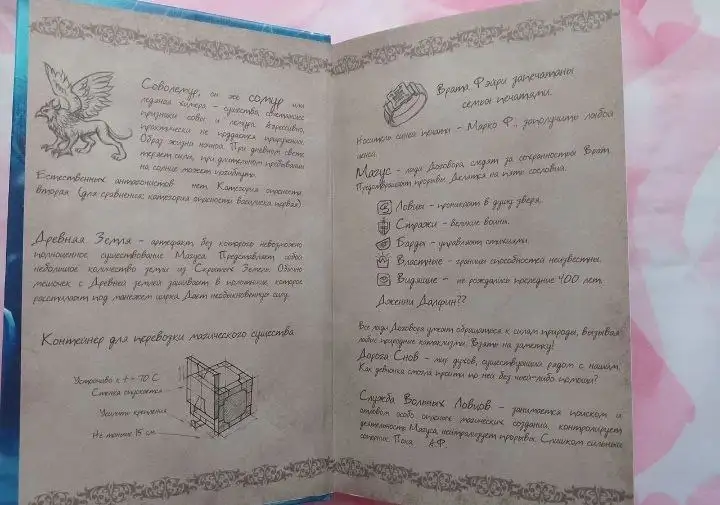 Соволемур, он же сомур или
ледяная химера - существо, сочетающее
признаки совы и лемура. Агрессивно,
практически не поддается приручению.
Образ жизни ночной. При дневном свете
теряет силы, при длительном пребывании
на солнце может погибнуть.
Естественных антагонистов нет. Категория опасности
вторая (для сравнения: категория опасности василиска первая)
Древняя Земля - артефакт, без которого невозможно
полноценное существование Магуса. Представляет собой
небольшое количество земли из Скрытых Земель. Обычно
мешочек с Древней землей зашивают в полотнище, которое
расстилают под манежем цирка. Дает необыкновенную силу.
Контейнер для перевозки магического существа
Устойчиво к t - 70 С
Стенка опускается
Усилить крепления
Не тоньше 15 см
Врата Фэйри запечатаны
семью печатями.
Носитель синей печати - Марко Ф., заполучить любой
ценой.
Магус - люди Договора, следят за сохранностью Врат.
Предотвращают прорывы. Делится на пять сословий.
Ловцы - проникают в душу зверя.
Стражи - великие воины.
Барды - управляют стихиями.
Властные - границы способностей неизвестны.
Видящие - не рождались последние 400 лет.
Дженни Далфин??
Все люди Договора умеют обращаться к силам природы, вызывая
лютые природные катаклизмы. Взять на заметку!
Дорога Снов - мир духов, существующий рядом с нашим.
Как девчонка смогла пройти по ней без чьей-либо помощи?
Служба Вольных Ловцов - занимается поиском и
отловом особо опасных магических созданий, контролирует
деятельность Магуса, нейтрализует прорывы. Слишком сильный
соперник. Пока А.Ф.